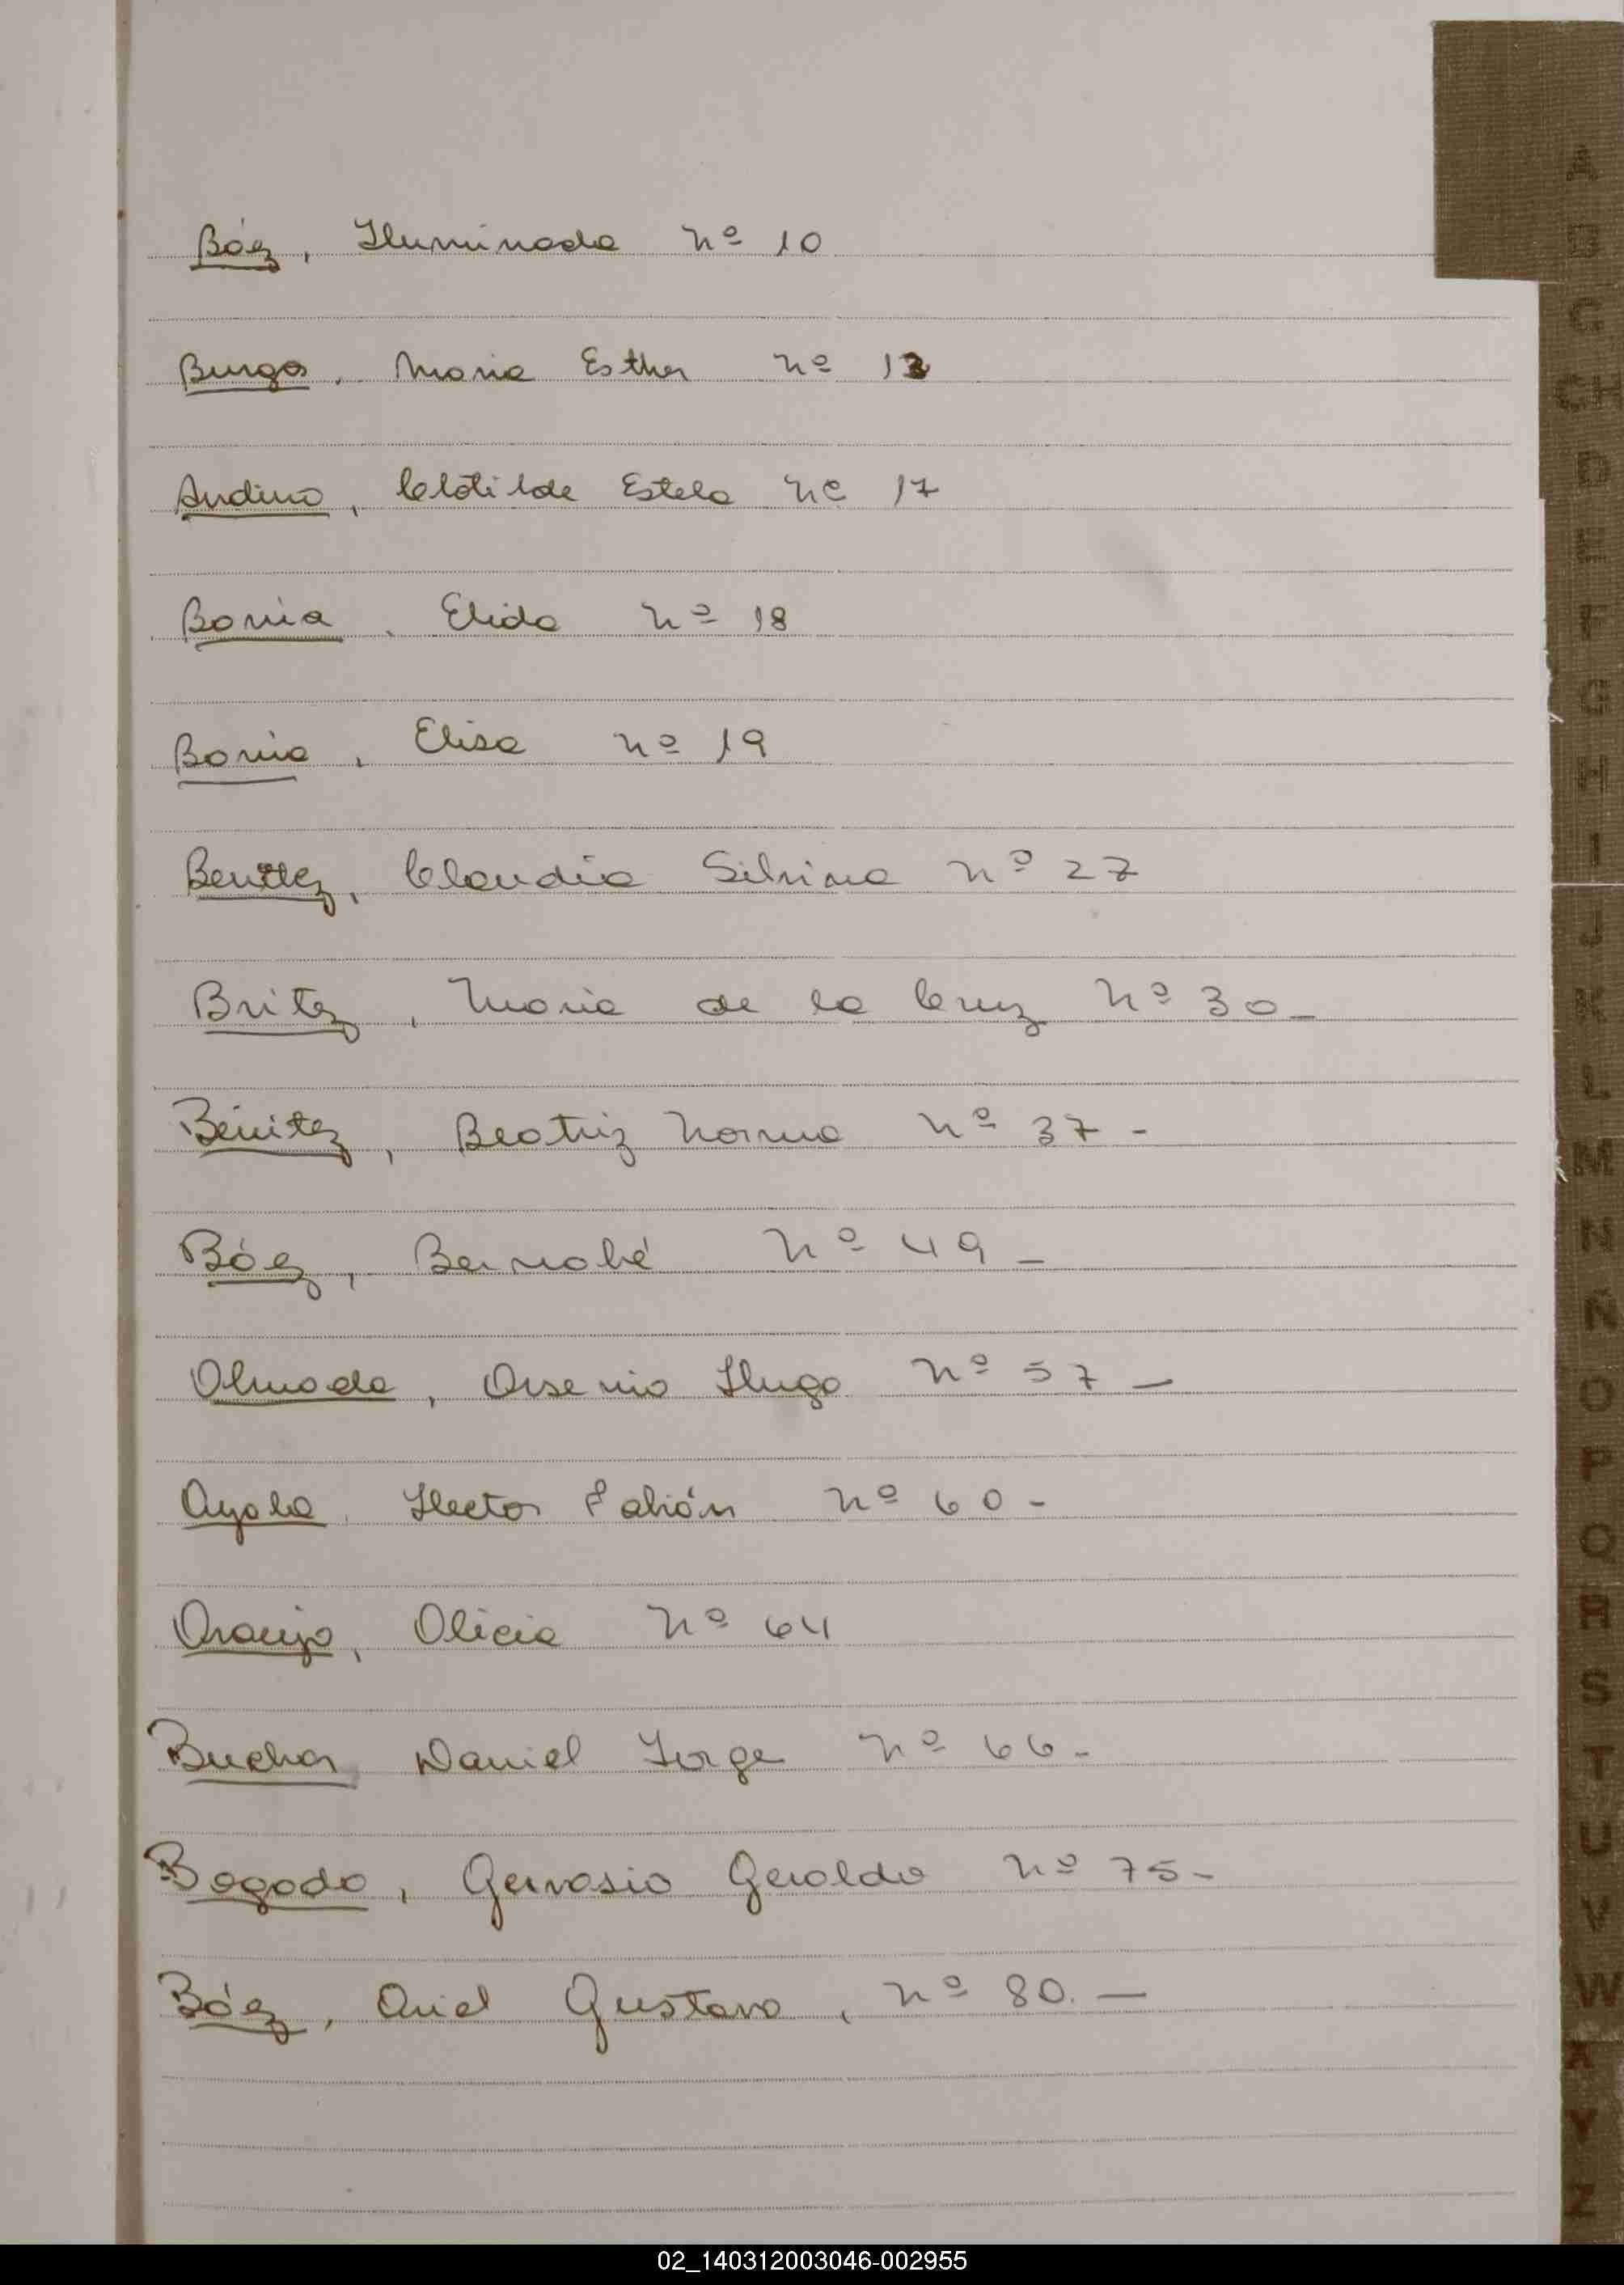 Báez, Iluminada nº 10
Burgos, Maria Esther nº 13
Andino, Clotilde Estela nº 17
Bonia, Elida nº 18
Bonia, Elisa nº 19
Benitez, Claudia Silvina nº 27
Britez, Maria de la Cruz nº 30-
Benitez, Beatriz Norma nº 37-
Báez, Bernabé nº 49-
Almada, Arsenio Hugo nº 57-
Ayala, Hector Fabián nº 60-
Araujo, Alicia nº 64
Bucher, Daniel Jorge nº 66-
Bogado, Gervasio Geraldo nº 75-
Báez, Ariel Gustavo, nº 80.-
A
B
C
CH
D
E
F
G
H
I
J
K
L
M
N
Ñ
O
P
Q
R
S
T
U
V
W
X
Y
Z
02_140312003046-002955